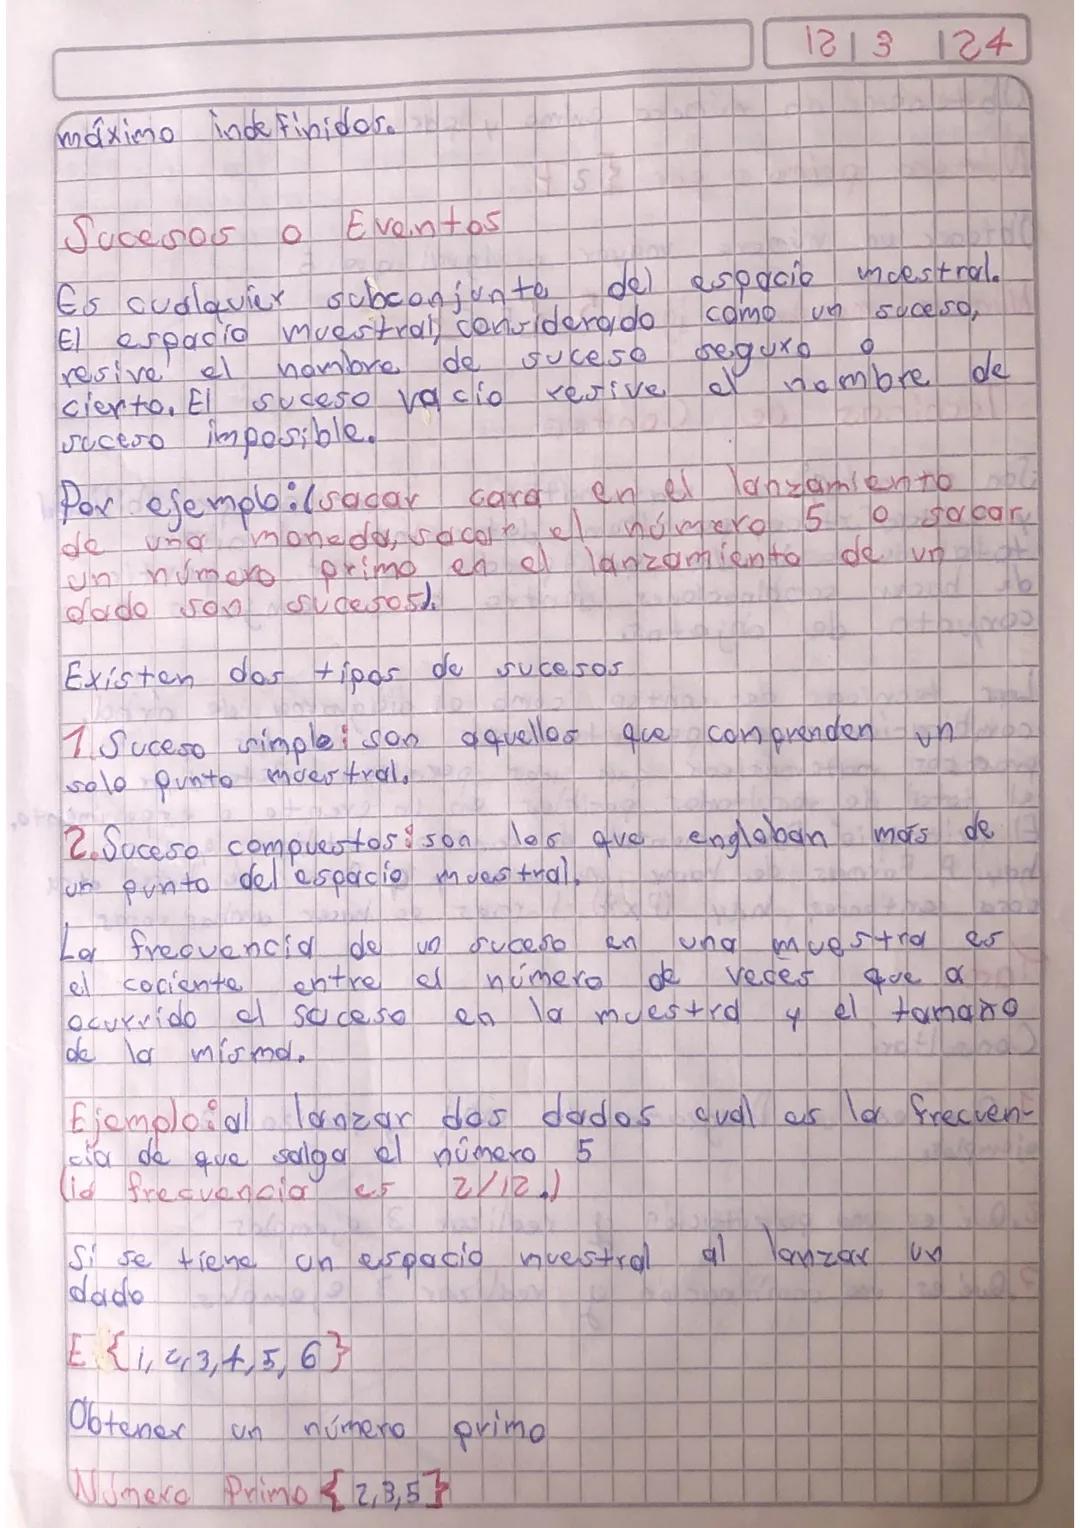 12 | 3 | 24
máximo indefinidos.
Sucesos o Eventos
Es cualquier subconjunto del espacio muestral.
El espacio muestral, considerado como un suceso,
resive el nombre de suceso seguro o
cierto. El suceso vacío resive el nombre de
suceso imposible.
Por ejemplo: (sacar cara en el lanzamiento
de una moneda, sacar el número 5 o sacar
un número primo en el lanzamiento de un
dado son sucesos).
Existen dos tipos de sucesos
1. Suceso simple: son aquellos que comprenden un
solo punto muestral.
2. Suceso compuestos: son los que engloban más de
un punto del espacio muestral.
La frecuencia de un suceso en una muestra es
el cociente entre el número de veces que a
ocurrido el suceso en la muestra y el tamaño
de la misma.
Ejemplo: al lanzar dos dados cual es la frecuen-
cia de que salga el número 5
(la frecuencia es 2/12.)
Si se tiene un espacio muestral al lanzar un
dado
E {1, 2, 3, 4, 5, 6}
Obtener un número primo
Número Primo {2, 3, 5}